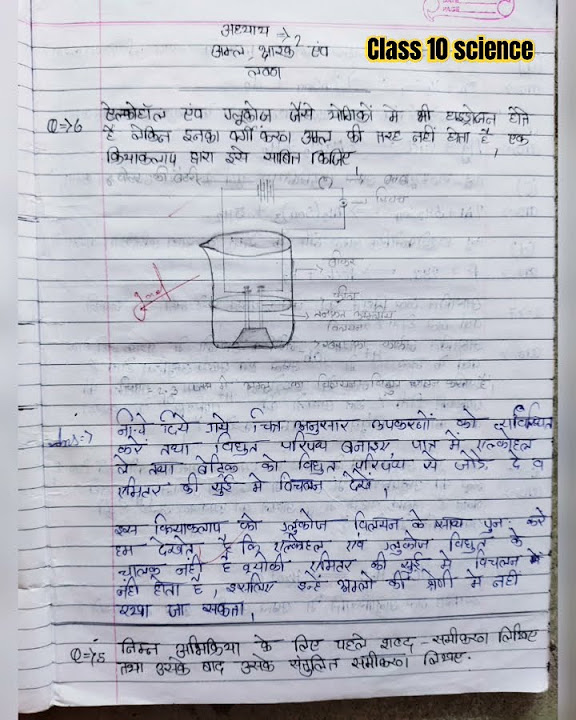 अध्याय => 2
अम्ल, क्षारक एवं
लवण
Class 10 science
Q=>6 एल्कोहॉल एवं ग्लूकोज जैसे योगिकों में भी हाइड्रोजन होते
है लेकिन इनका वर्गीकरण अम्ल की तरह नहीं होता है, एक
क्रियाकलाप द्वारा इसे साबित किजिए,
बीकर
कील
Ans:-> नीचे दिये गये चित्र अनुसार उपकरणों को व्यवस्थित
करें तथा विधुत परिपथ बनाइए, पात्र में एल्कोहल
ले तथा बैट्रिक को विधुत परिपथ से जोड़ दे व
एमिटर की सुई में विचलन देखें,
इस क्रियाकलाप को ग्लूकोज विलयन के साथ पुन करे
हम देखते है कि एल्कोहल एवं ग्लूकोज विधुत के
चालक नहीं है क्योंकी एमिटर की सुई में विचलन
नहीं होता है, इसलिए इन्हें अम्लों की श्रेणी में नहीं
रखा जा सकता,
Q=>5 निम्न अभिक्रिया के लिए पहले शब्द-समीकरण लिखिए
तथा उसके बाद उसके संतुलित समीकरण लिखिए.